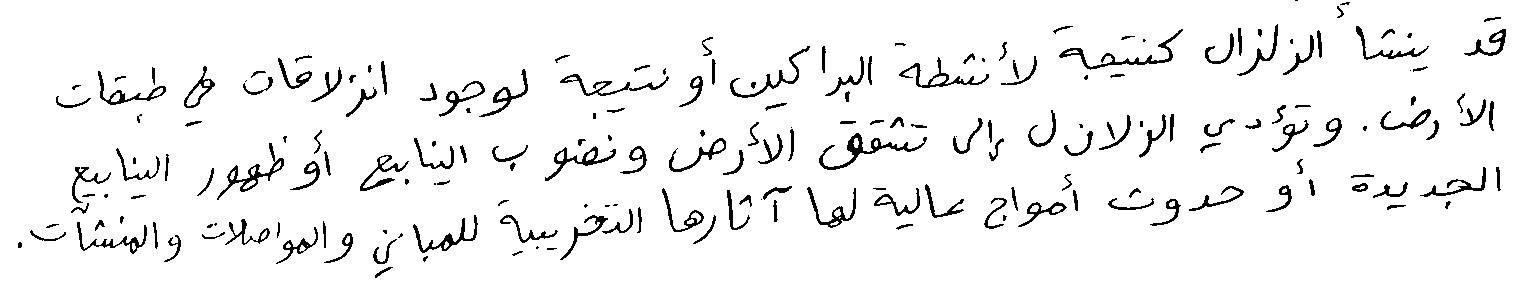 قد ينشأ الزلزال كنتيجة لأنشطة البراكين أو نتيجة لوجود انزلاقات في طبقات
الأرض. وتؤدي الزلازل إلى تشقق الأرض ونضوب الينابيع أو ظهور الينابيع
الجديدة أو حدوث أمواج عالية لها آثارها التخريبية للمباني والمواصلات والمنشآت.